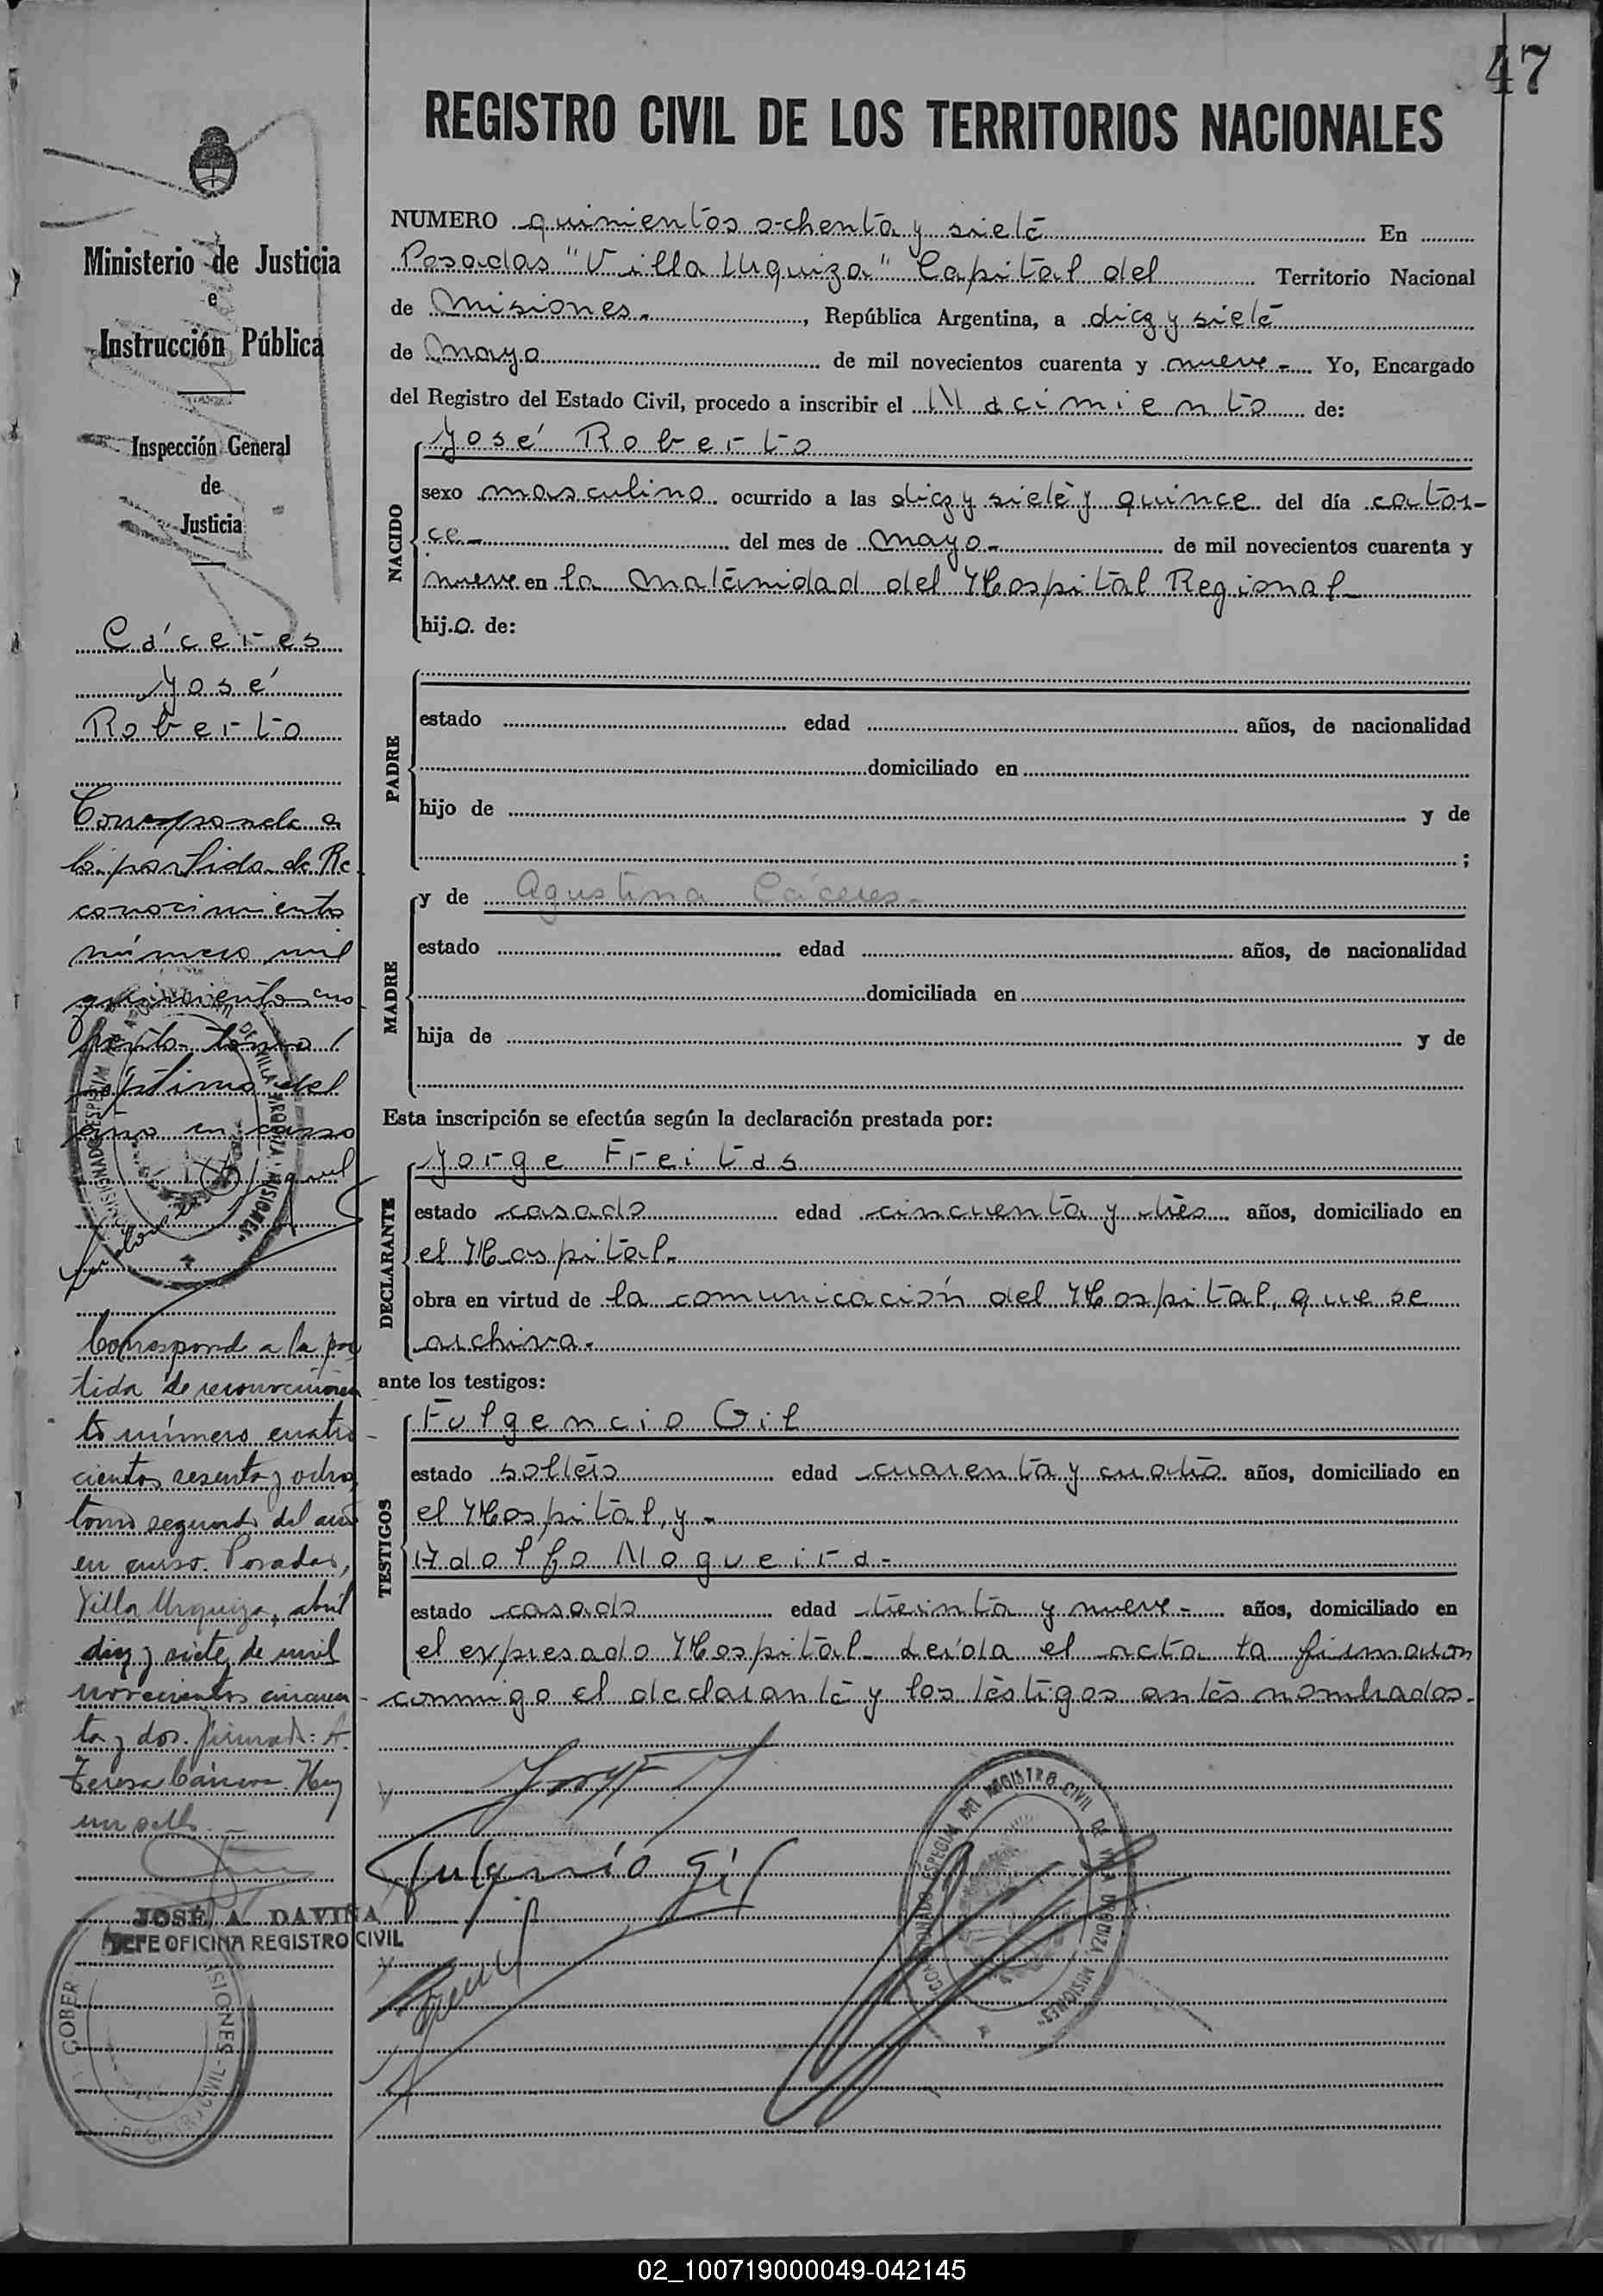 47
REGISTRO CIVIL DE LOS TERRITORIOS NACIONALES
Ministerio de Justicia
e
Instrucción Pública
Inspección General
de
Justicia
Cáceres
José
Roberto
Corresponde a
la partida de Re
conocimiento
número mil
tomo
séptimo del
año en curso
Corresponde a la par
tida de reconocimien
to número cuatro-
cientos sesenta y ocho,
tomo segundo del año
en curso. Posadas,
Villa Urquiza, abril
diez y siete de mil
novecientos cincuen-
ta y dos. Firmado: A.
Teresa Hay
un sello.-
JOSÉ A. DAVIÑA
JEFE OFICINA REGISTRO CIVIL
GOBER MISIONES - REGISTRO CIVIL
NUMERO quinientos ochenta y siete En
Posadas "Villa Urquiza" Capital del Territorio Nacional
de Misiones.- , República Argentina, a diez y siete
de Mayo de mil novecientos cuarenta y nueve.- Yo, Encargado
del Registro del Estado Civil, procedo a inscribir el Nacimiento de:
NACIDO
José Roberto
sexo masculino ocurrido a las diez y siete y quince del día cator-
ce.- del mes de Mayo.- de mil novecientos cuarenta y
nueve en la Maternidad del Hospital Regional.-
hij.o. de:
PADRE
estado edad años, de nacionalidad
domiciliado en
hijo de y de
;
MADRE
y de Agustina Cáceres.-
estado edad años, de nacionalidad
domiciliada en
hija de y de
Esta inscripción se efectúa según la declaración prestada por:
DECLARANTE
Jorge Freitas
estado casado edad cincuenta y tres años, domiciliado en
el Hospital.-
obra en virtud de la comunicación del Hospital, que se
archiva.-
ante los testigos:
TESTIGOS
Fulgencio Gil
estado soltero edad cuarenta y cuatro años, domiciliado en
el Hospital, y -
Adolfo Nogueira.-
estado casado edad treinta y nueve.- años, domiciliado en
el expresado Hospital. Leída el acta la firmaron
conmigo el declarante y los testigos antes nombrados.-
Fulgencio Gil
COMISIONADO ESPECIAL DEL REGISTRO CIVIL DE VILLA URQUIZA, MISIONES
02_100719000049-042145